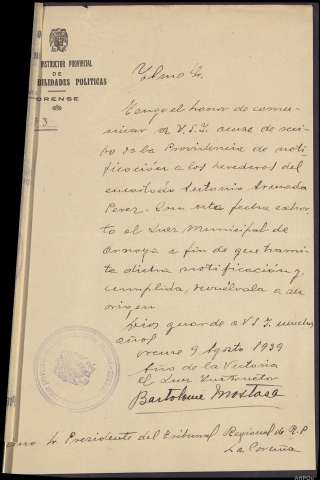 INSTRUCTOR PROVINCIAL
DE
BILIDADES POLITICAS
ORENSE
3
Ilmo Sr.
Tengo el honor de comu-
nicar a V.S.I. acuse de reci-
bo de la Providencia de noti-
ficación a los herederos del
encartado Antonio Granada
Perez. Con esta fecha exhor-
to al Juez Municipal de
a fin de que tramite
dicha notificación y
cumplida, devuélvala a su
origen
Dios guarde a V.S.I. muchos
años
Orense 9 Agosto 1939
Año de la Victoria
el Juez Instructor
Bartolome Mostaza
Sr Presidente del Tribunal Regional de R.P
La Coruña